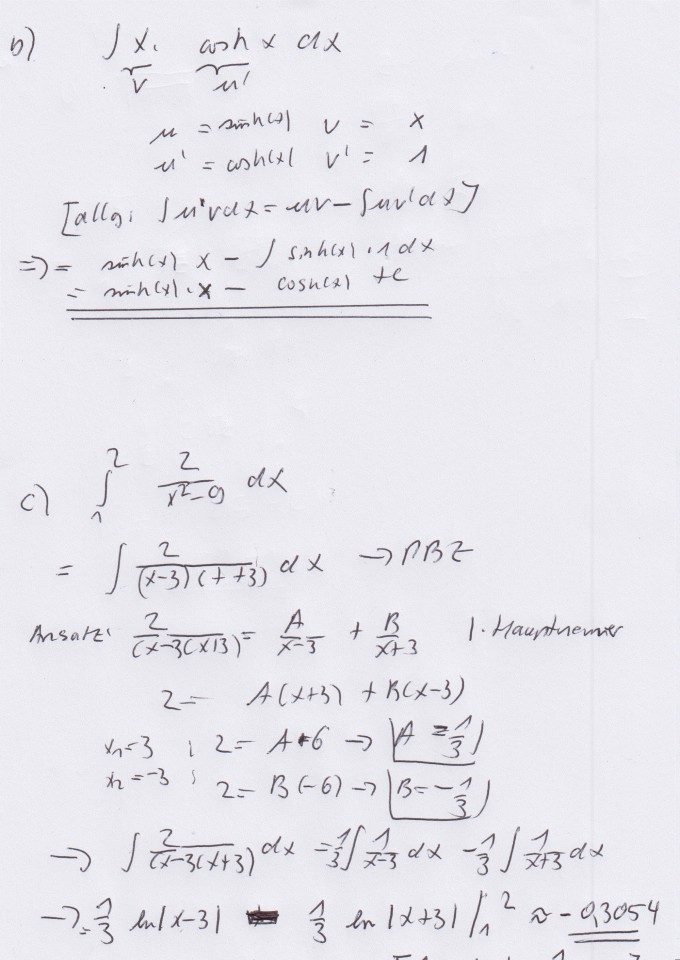 b) ∫ x · cosh x dx
v u'
u = sinh(x) v = x
u' = cosh(x) v' = 1
[allg: ∫u'vdx = uv - ∫uv'dx]
=> = sinh(x) x - ∫ sinh(x) · 1 dx
= sinh(x) · x - cosh(x) + c
c) ∫₁² 2/(x²-9) dx
= ∫ 2/((x-3)(x+3)) dx → PBZ
Ansatz: 2/((x-3(x+3) = A/(x-3) + B/(x+3) | · Hauptnenner
2 = A(x+3) + B(x-3)
x₁=3 ; 2 = A·6 → A = 1/3
x₂=-3 ; 2 = B(-6) → B = -1/3
→ ∫ 2/((x-3(x+3) dx = 1/3 ∫ 1/(x-3) dx - 1/3 ∫ 1/(x+3) dx
→ = 1/3 ln|x-3| - 1/3 ln|x+3| |₁² ≈ -0,3054